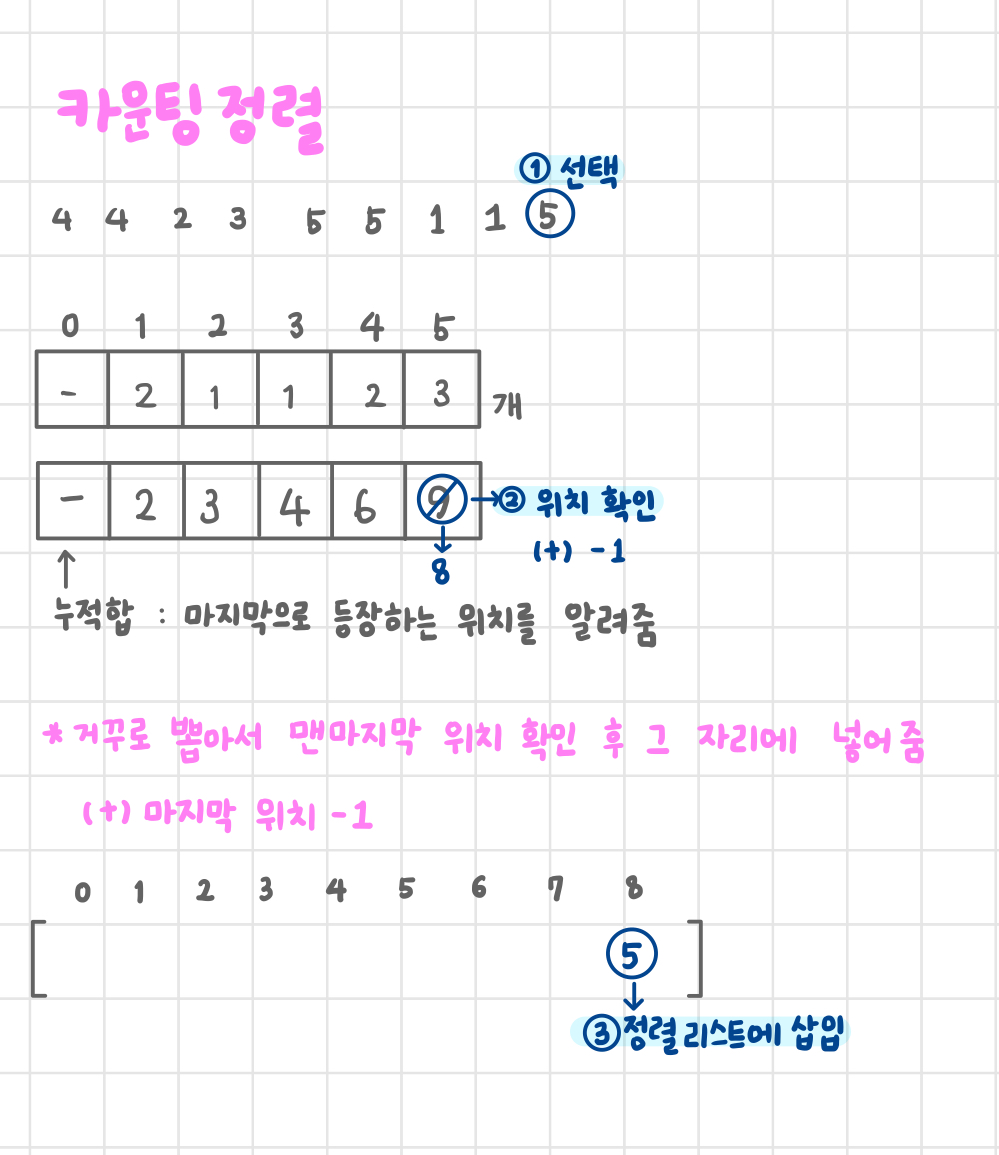 카운팅 정렬
① 선택
4 4 2 3 5 5 1 1 5
0 1 2 3 4 5
- 2 1 1 2 3 개
- 2 3 4 6 9 → ② 위치 확인
(+) -1
8
누적합 : 마지막으로 등장하는 위치를 알려줌
* 거꾸로 뽑아서 맨마지막 위치 확인 후 그 자리에 넣어줌
(+) 마지막 위치 -1
0 1 2 3 4 5 6 7 8
[ 5 ]
③ 정렬 리스트에 삽입